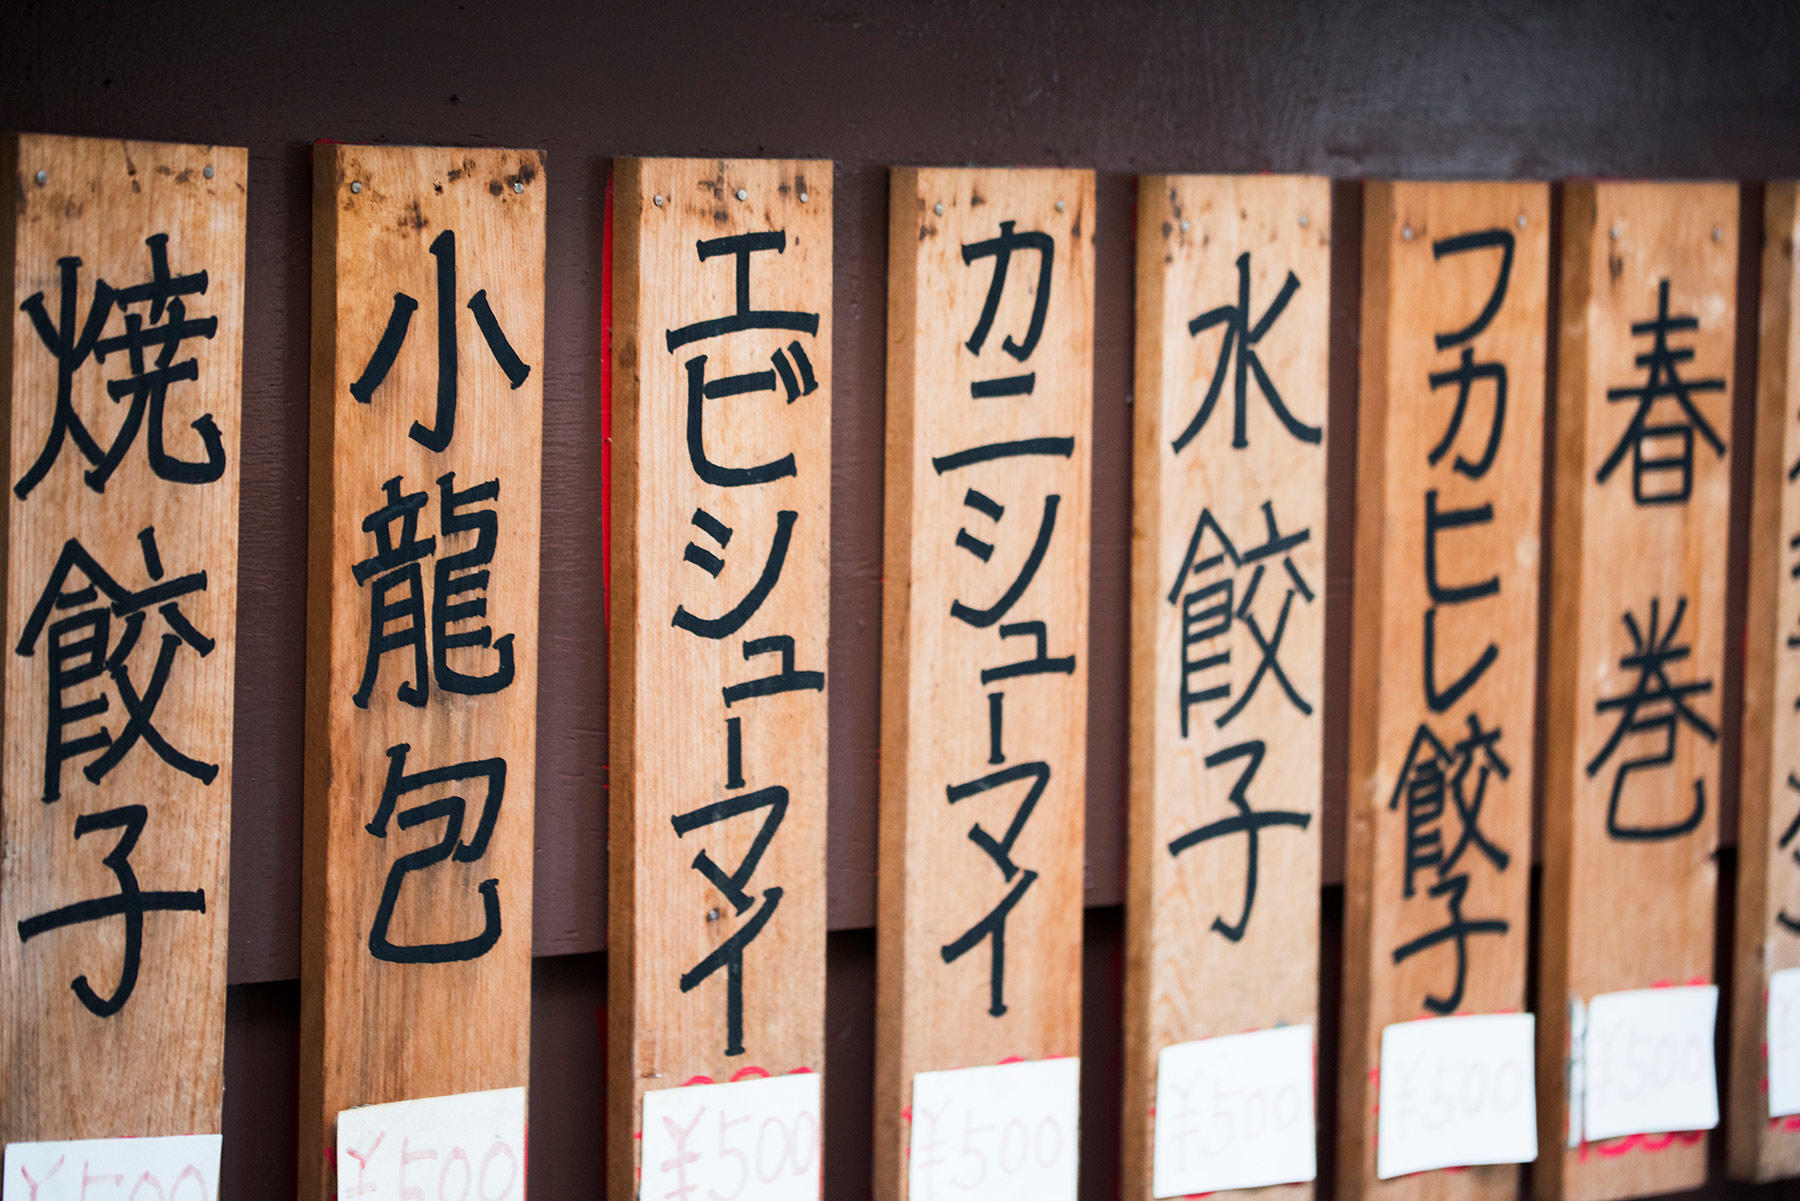 焼餃子
¥500
小龍包
¥500
エビシューマイ
¥500
カニシューマイ
¥500
水餃子
¥500
フカヒレ餃子
¥500
春巻
¥500